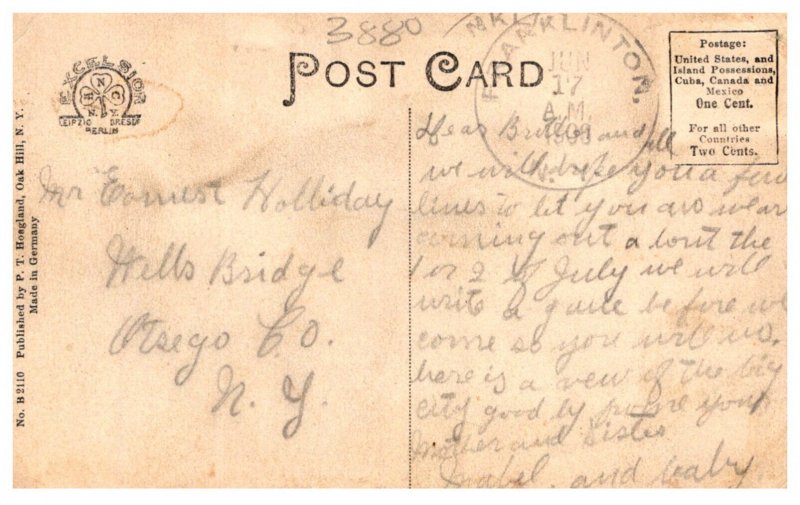 3880
EXCELSIOR
N
H C
N.Y.
LEIPZIG DRESD
BERLIN
POST CARD
NKLI
FRANKLINTON,
JUN
17
A.M.
Postage:
United States, and
Island Possessions,
Cuba, Canada and
Mexico
One Cent.
For all other
Countries
Two Cents.
No. B 2110 Published by P. T. Hoagland, Oak Hill, N. Y.
Made in Germany
Mr Earnest Holliday
Wells Bridge
Otsego Co.
N. Y.
Dear Brother and all
we will drope you a few
lines to let you
coming out a bout the
1 or 2 of July we will
write a gane before we
come so you will
here is a view of the big
city good by your
Mother and Sister
Mabel. and baby.